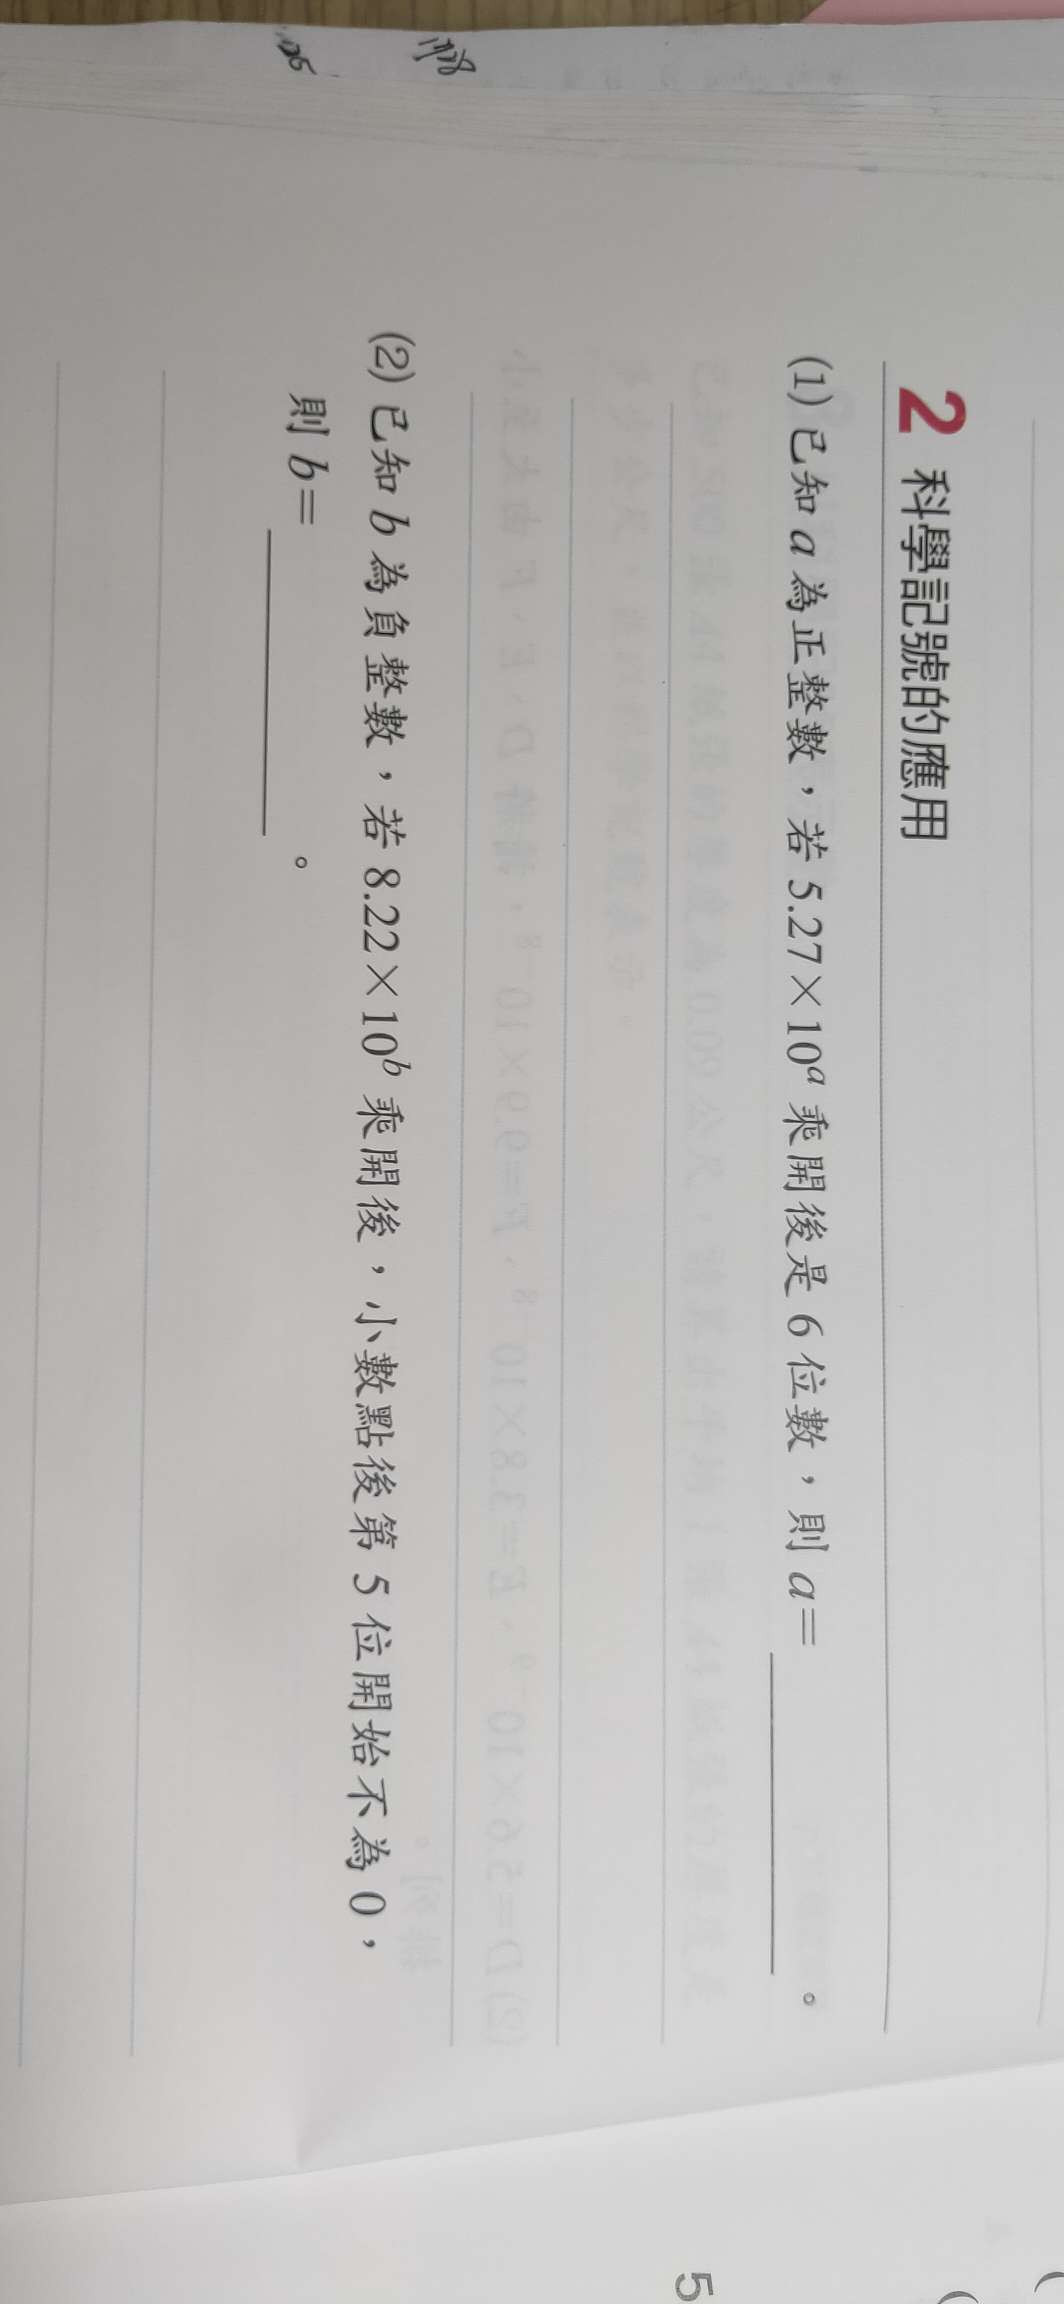 2 科學記號的應用
(1) 已知 a 為正整數，若 5.27×10ᵃ 乘開後是 6 位數，則 a=＿＿＿＿。
(2) 已知 b 為負整數，若 8.22×10ᵇ 乘開後，小數點後第 5 位開始不為 0，
則 b=＿＿＿＿。
5